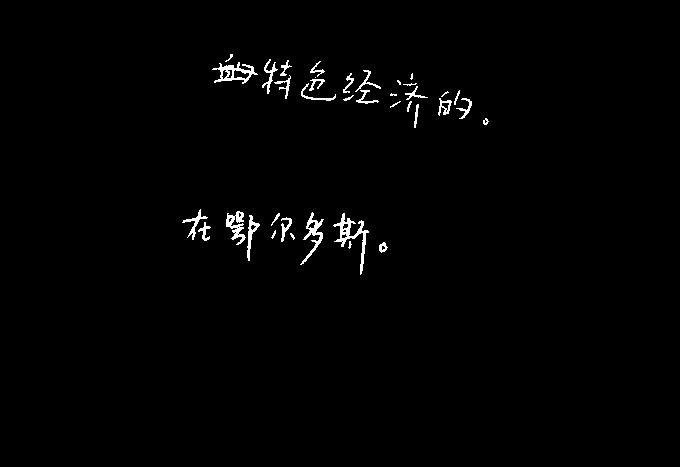 特色经济的。
在鄂尔多斯。